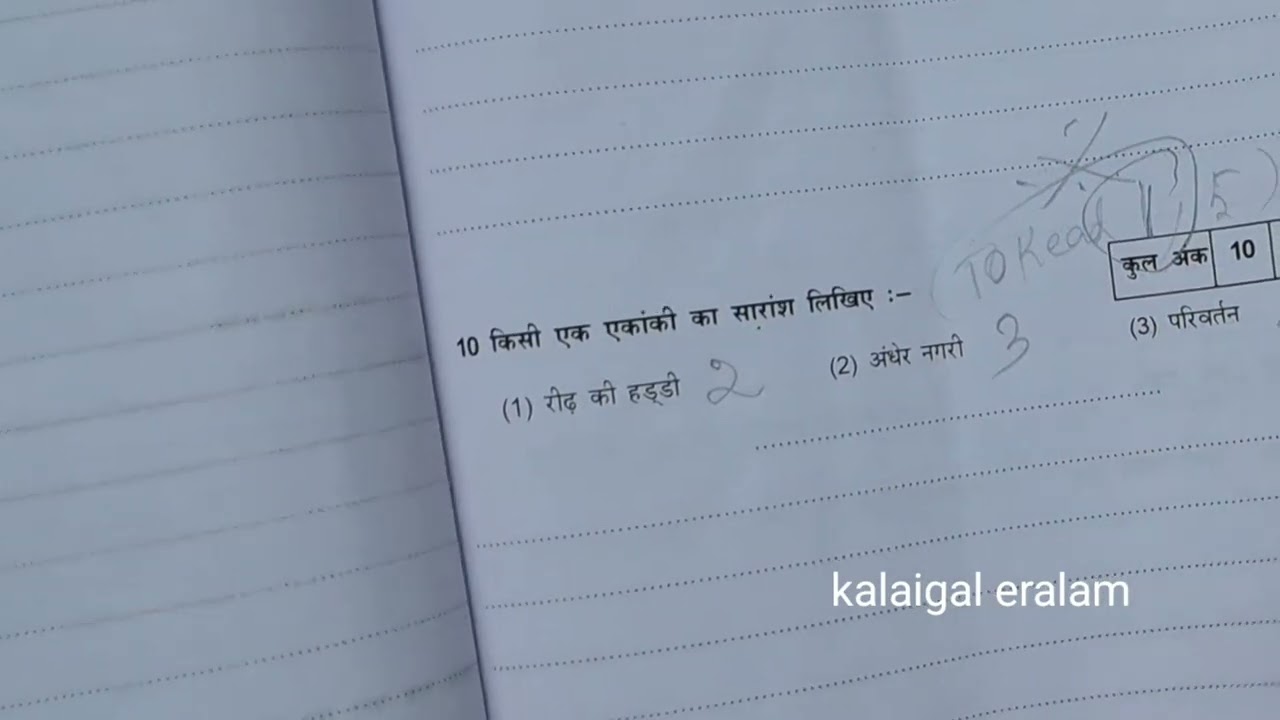 (TO Read 1, 5)
कुल अंक 10
10 किसी एक एकांकी का सारांश लिखिए :–
(1) रीढ़ की हड्डी 2 (2) अंधेर नगरी 3 (3) परिवर्तन
kalaigal eralam